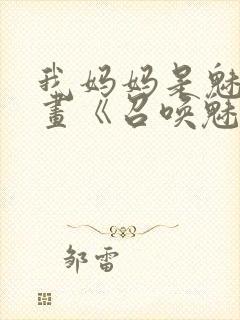 我妈妈是魅
画《召唤魅
邹雷